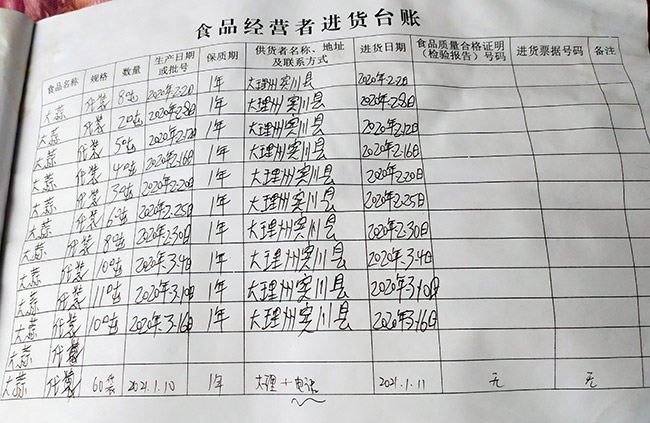 食品经营者进货台账
食品名称 规格 数量 生产日期或批号 保质期 供货者名称、地址及联系方式 进货日期 食品质量合格证明(检验报告)号码 进货票据号码 备注
大蒜 代装 8吨 2020年2.2日 1年 大理州宾川县 2020年2.2日
大蒜 代装 20吨 2020年2.8日 1年 大理州宾川县 2020年2.8日
大蒜 代装 50吨 2020年2.12日 1年 大理州宾川县 2020年2.12日
大蒜 代装 40吨 2020年2.16日 1年 大理州宾川县 2020年2.16日
大蒜 代装 30吨 2020年2.20日 1年 大理州宾川县 2020年2.20日
大蒜 代装 2020年2.25日 1年 大理州宾川县 2020年2.25日
大蒜 代装 2020年2.30日 1年 大理州宾川县 2020年2.30日
大蒜 代装 100吨 2020年3.4日 1年 大理州宾川县 2020年3.4日
大蒜 代装 110吨 2020年3.10日 1年 大理州宾川县 2020年3.10日
大蒜 代装 100吨 2020年3.16日 1年 大理州宾川县 2020年3.16日
大蒜 代装
大蒜 代装 60袋 2021.1.10 1年 大理 电话 2021.1.11 无 无